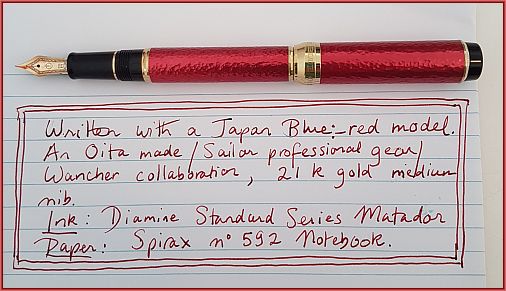 Written with a Japan Blue:-red model.
An Oita made /Sailor professional gear/
Wancher collaboration, 21 k gold medium
nib.
Ink: Diamine Standard Series Matador
Paper: Spirax n° 592 Notebook.